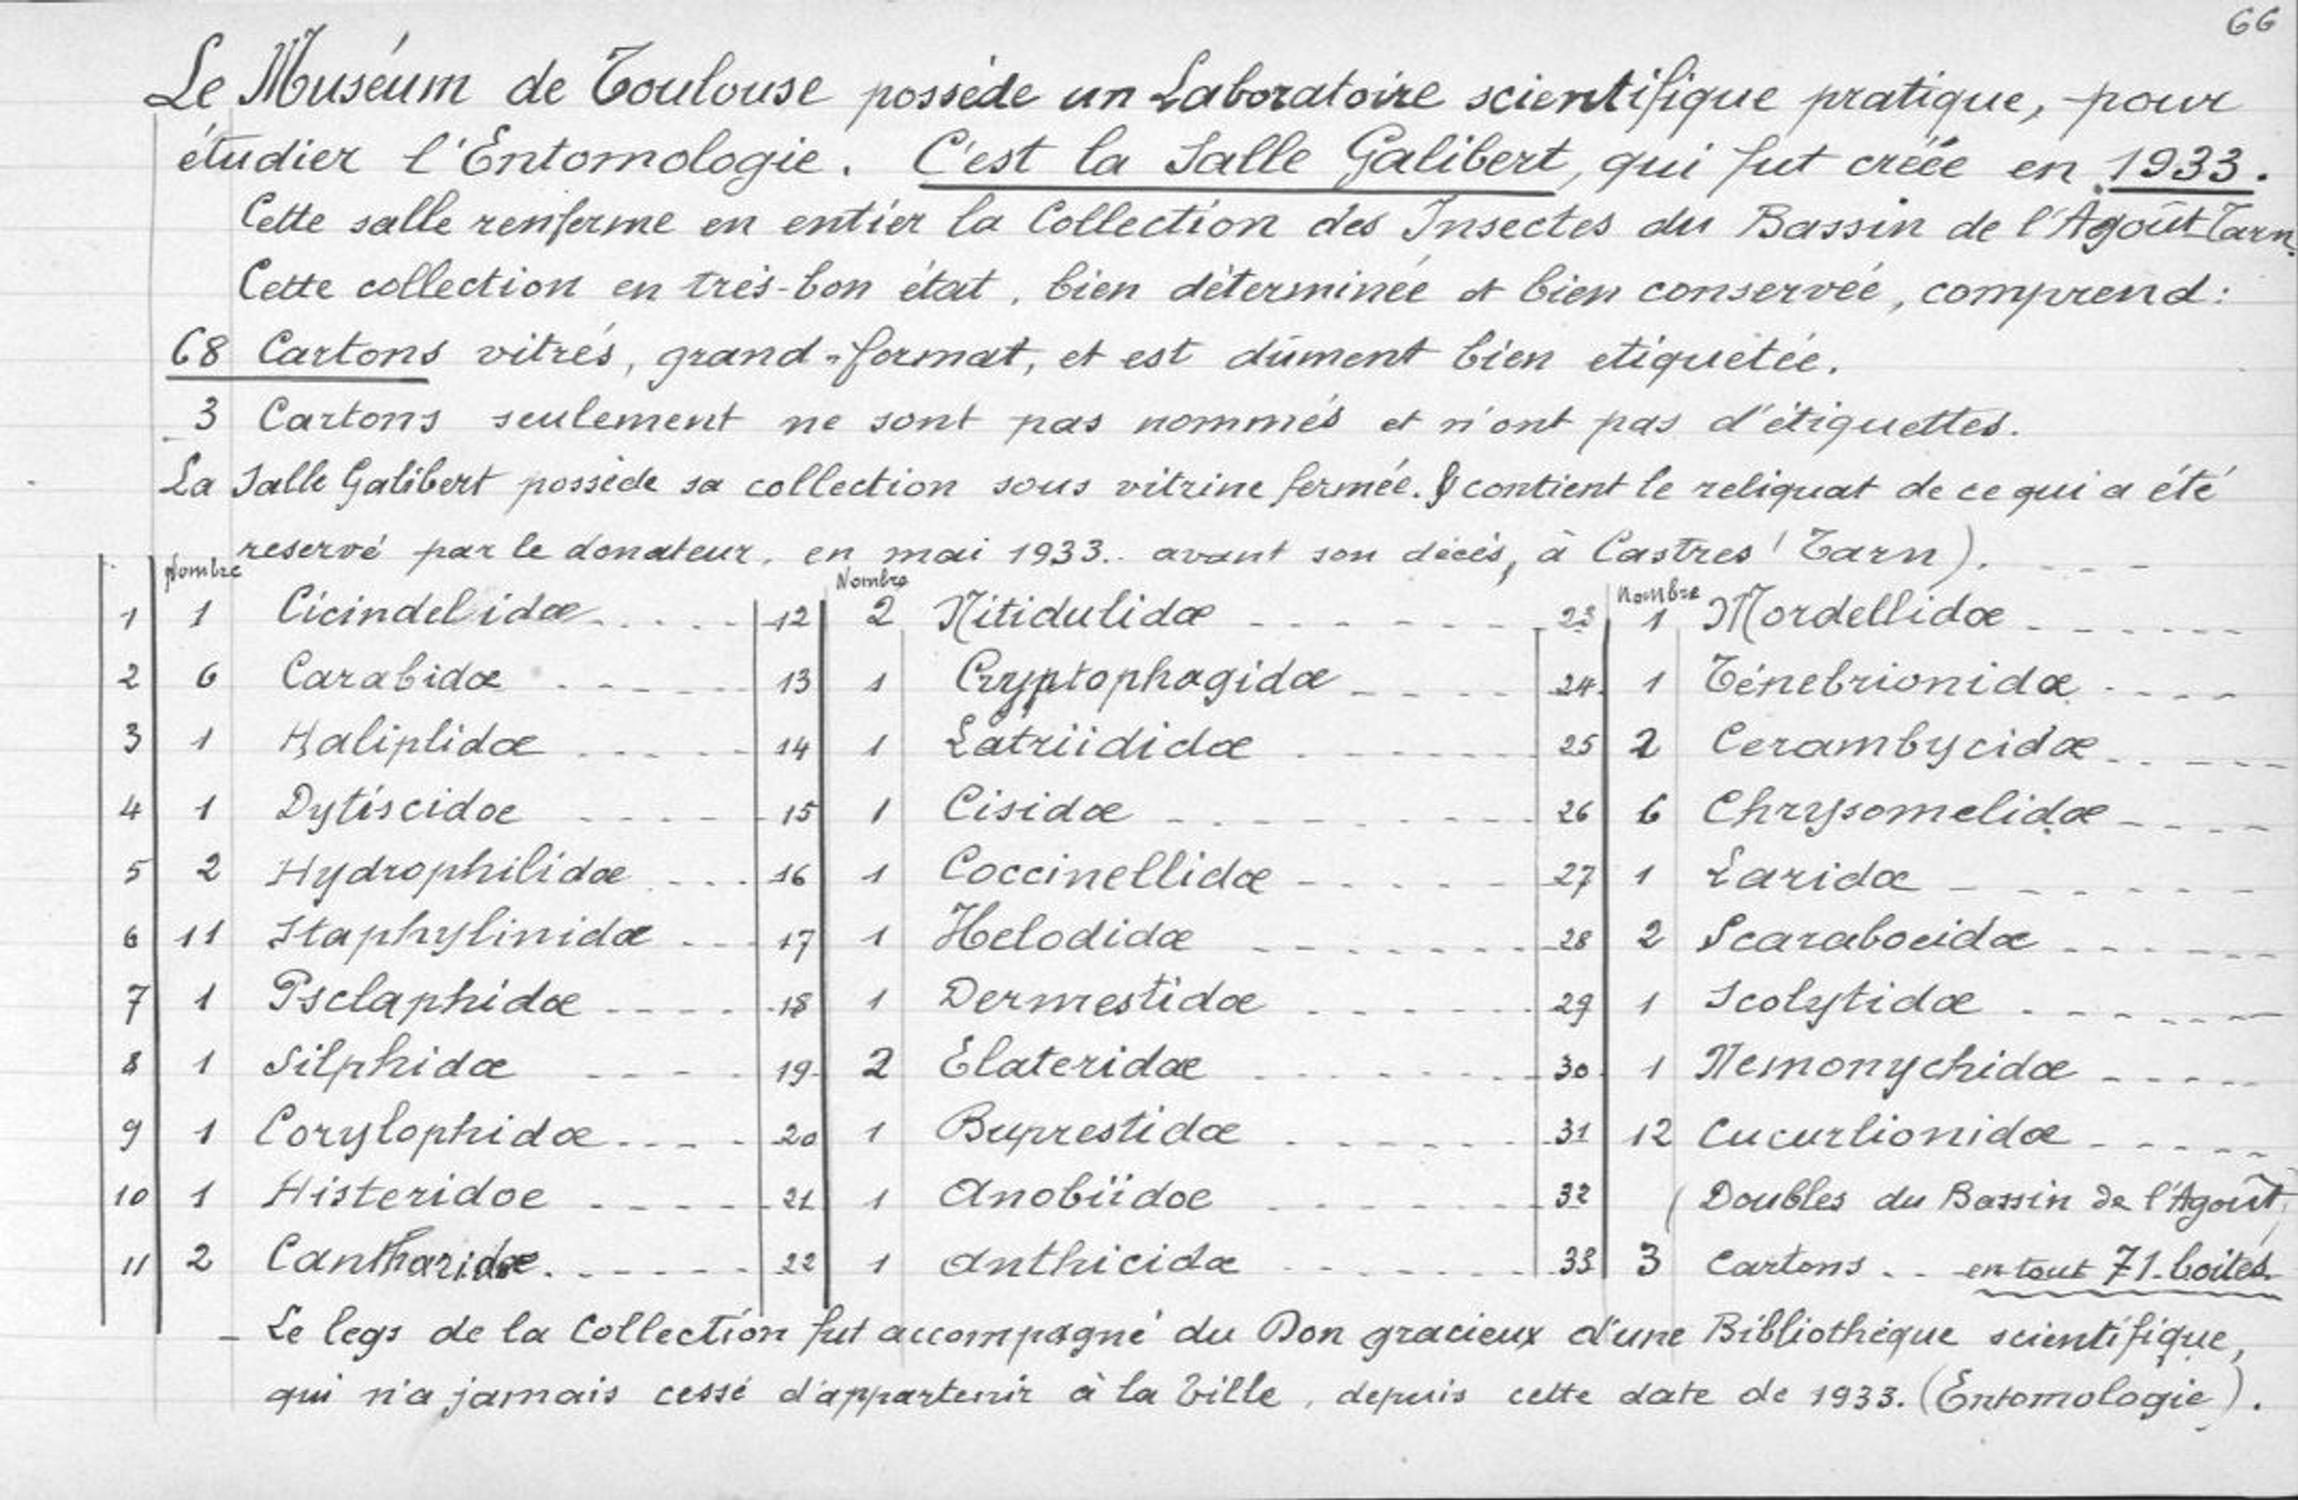 66
Le Muséum de Toulouse possède un Laboratoire scientifique pratique, pour
étudier l'Entomologie. C'est la Salle Galibert, qui fut créée en 1933.
Cette salle renferme en entier la Collection des Insectes du Bassin de l'Agoût-Tarn.
Cette collection en très-bon état, bien déterminée et bien conservée, comprend :
68 Cartons vitrés, grand-format, et est dûment bien etiquetée.
3 Cartons seulement ne sont pas nommés et n'ont pas d'étiquettes.
La Salle Galibert possède sa collection sous vitrine fermée. & contient le reliquat de ce qui a été
reservé par le donateur, en mai 1933.. avant son décés, à Castres (Tarn).
Nombre Nombre Nombre
1 1 Cicindelidæ 12 2 Nitidulidæ 23 1 Mordellidæ
2 6 Carabidæ 13 1 Cryptophagidæ 24 1 Ténebrionidæ
3 1 Haliplidæ 14 1 Latriididæ 25 2 Cerambycidæ
4 1 Dytiscidæ 15 1 Cisidæ 26 6 Chrysomelidæ
5 2 Hydrophilidæ 16 1 Coccinellidæ 27 1 Laridæ
6 11 Staphylinidæ 17 1 Helodidæ 28 2 Scaraboeidæ
7 1 Psclaphidæ 18 1 Dermestidæ 29 1 Scolytidæ
8 1 Silphidæ 19 2 Elateridæ 30 1 Nemonychidæ
9 1 Corylophidæ 20 1 Buprestidæ 31 12 Cucurlionidæ
10 1 Histeridoe 21 1 Anobiidoe 32 (Doubles du Bassin de l'Agoût)
11 2 Cantharidæ 22 1 Anthicidæ 33 3 Cartons .. en tout 71-boites.
- Le legs de la Collection fut accompagné du Don gracieux d'une Bibliothèque scientifique,
qui n'a jamais cessé d'appartenir à la Ville, depuis cette date de 1933. (Entomologie).